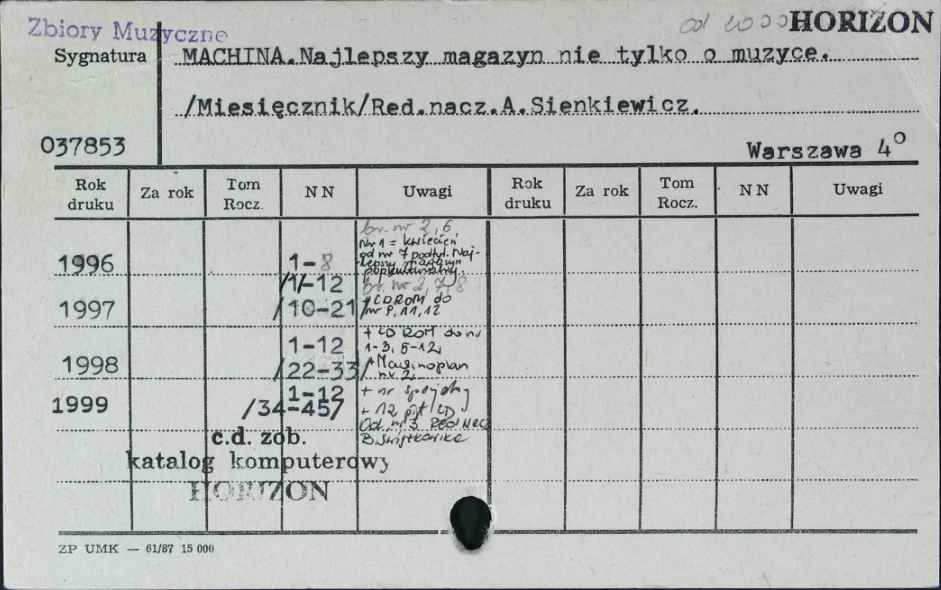 Zbiory Muzyczne
od 2000 HORIZON
Sygnatura
MACHINA.Najlepszy magazyn nie tylko o muzyce.
/Miesięcznik/Red.nacz.A.Sienkiewicz.
037853
Warszawa 4°
Rok druku Za rok Tom Rocz. NN Uwagi Rok druku Za rok Tom Rocz. NN Uwagi
br. nr 2,6,
Nr 1 = kwiecień
od nr 7 podtyt. Naj-
1996 1-8
popkulturalny.
/1/-12 br. nr 2,7,8
1997 /10-21/ + CD ROM do
nr 9,11,12
1-12 + CD ROM do nr
1-3, 5-12,
1998 /22-33/
nr 2.
1-12
1999 /34-45/ + 12 płyt CD
Od nr 3 RED. NACZ.
c.d. zob.
katalog komputerowy
HORIZON
ZP UMK — 61/87 15 000